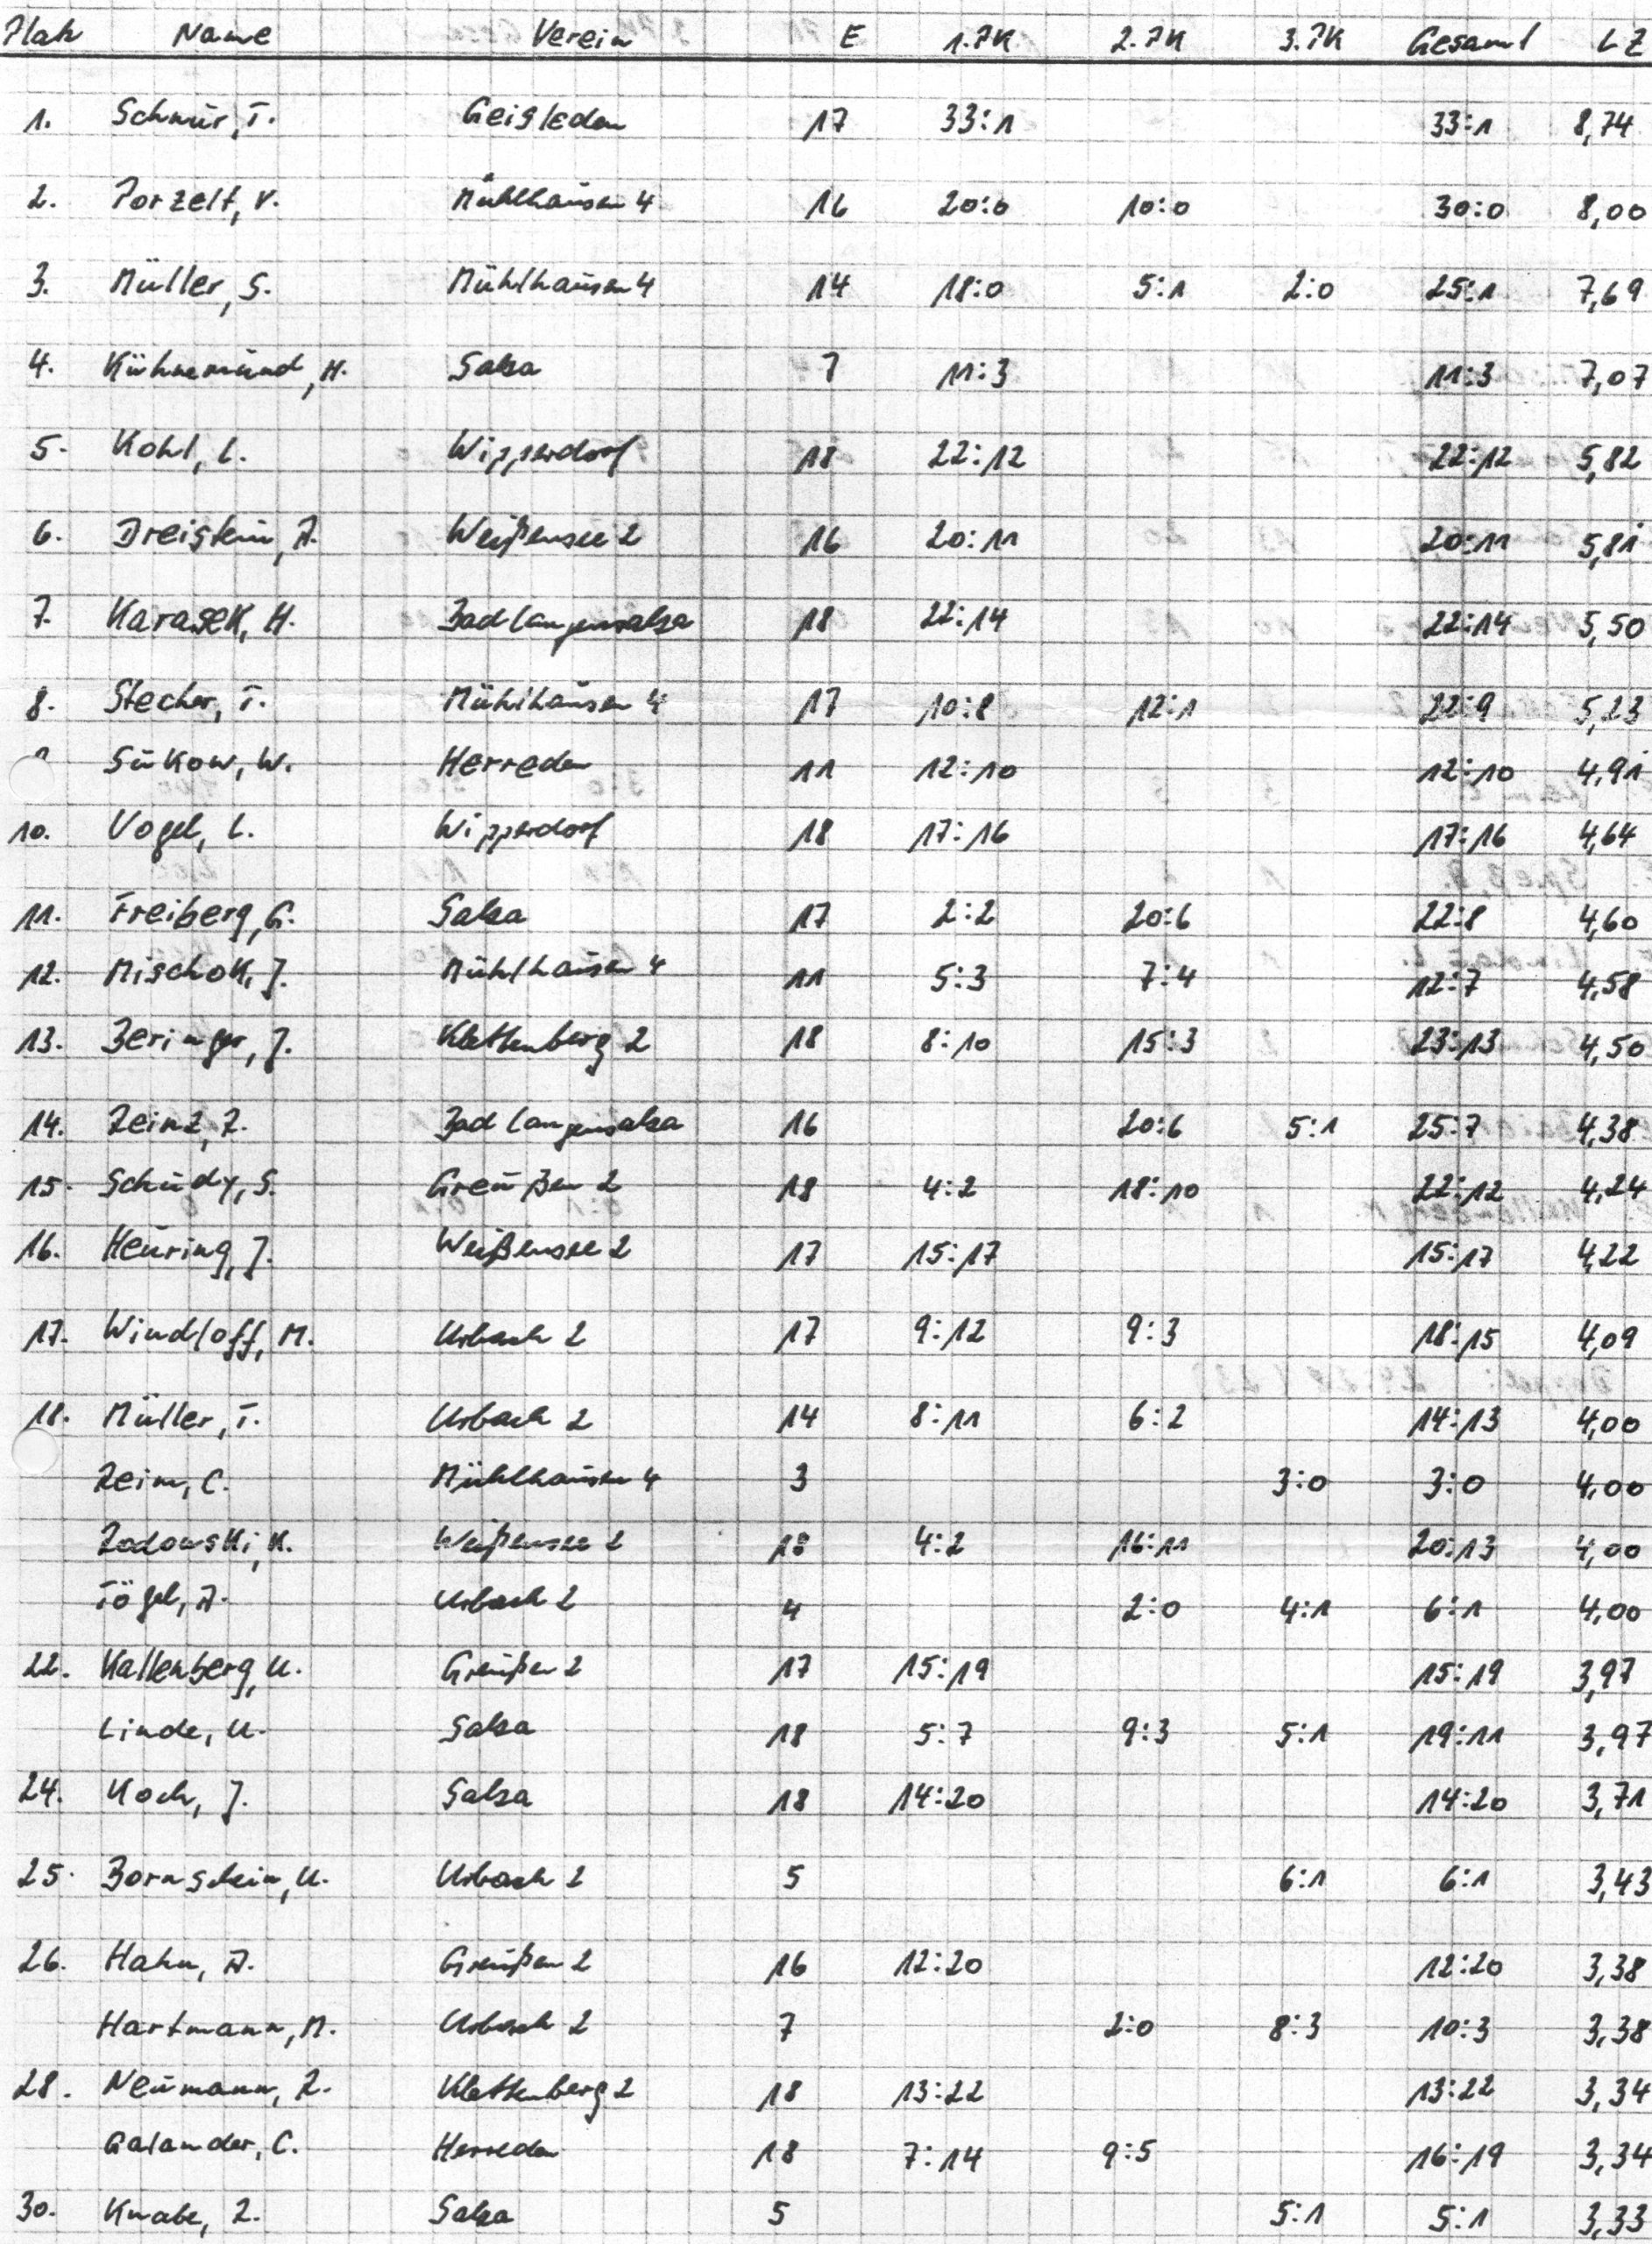 Platz Name Verein E 1.PK 2.PK 3.PK Gesamt LZ
1. Schnur, T. Geisleden 17 33:1 33:1 8,74
2. Porzelt, V. Mühlhausen 4 16 20:0 10:0 30:0 8,00
3. Müller, S. Mühlhausen 4 14 18:0 5:1 2:0 25:1 7,69
4. Kühnemund, H. Salza 7 11:3 11:3 7,07
5. Kohl, L. Wipperdorf 18 22:12 22:12 5,82
6. Dreistein, A. Weißensee 2 16 20:11 20:11 5,81
7. Karasek, H. Bad Langensalza 18 22:14 22:14 5,50
8. Stecher, T. Mühlhausen 4 17 10:8 12:1 22:9 5,23
Sukow, W. Herreden 11 12:10 12:10 4,91
10. Vogel, L. Wipperdorf 18 17:16 17:16 4,64
11. Freiberg, G. Salza 17 2:2 20:6 22:8 4,60
12. Mischok, J. Mühlhausen 4 11 5:3 7:4 12:7 4,58
13. Beringer, J. Klettenberg 2 18 8:10 15:3 23:13 4,50
14. Reinz, R. Bad Langensalza 16 20:6 5:1 25:7 4,38
15. Schudy, S. Greußen 2 18 4:2 18:10 22:12 4,24
16. Heuring, J. Weißensee 2 17 15:17 15:17 4,22
17. Windloff, M. Urbach 2 17 9:12 9:3 18:15 4,09
18. Müller, T. Urbach 2 14 8:11 6:2 14:13 4,00
Reim, C. Mühlhausen 4 3 3:0 3:0 4,00
Rodowski, K. Weißensee 2 18 4:2 16:11 20:13 4,00
Tögel, A. Urbach 2 4 2:0 4:1 6:1 4,00
22. Kallenberg, U. Greußen 2 17 15:19 15:19 3,97
Linde, U. Salza 18 5:7 9:3 5:1 19:11 3,97
24. Koch, J. Salza 18 14:20 14:20 3,71
25. Bornstein, U. Urbach 2 5 6:1 6:1 3,43
26. Hahn, A. Greußen 2 16 12:20 12:20 3,38
Hartmann, M. Urbach 2 7 2:0 8:3 10:3 3,38
28. Neumann, R. Klettenberg 2 18 13:22 13:22 3,34
Galander, C. Herreden 18 7:14 9:5 16:19 3,34
30. Knabe, R. Salza 5 5:1 5:1 3,33